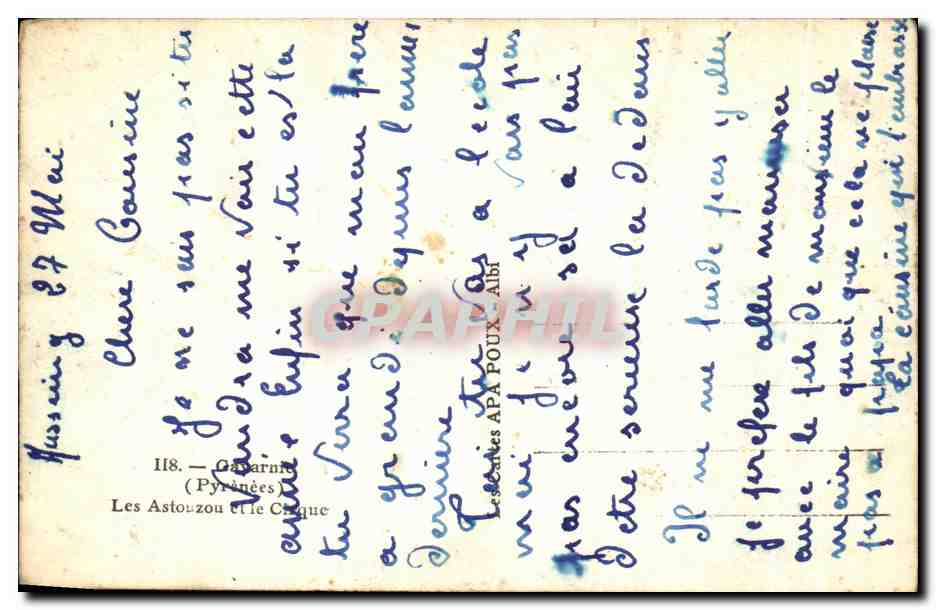 Mussein 27 Mai
Chere Cousine
Je ne sais pas si tu
Vaudra me voir cette
année Enfin si tu es la
tu verra que mon frere
a grandi depuis l'annee
derniere
Toi tu vas a l'ecole
moi je n'y vais pas
pas encore sa a l'air
d'etre serieuse la dedans
Il ne me tarde pas y aller
Je prefere aller m'amuser
avec le fils de monsieur le
maire quoi que cela ne plaise
pas a papa
La cousine qui t'embrasse
118. — Gavarnie
(Pyrénées)
Les Astouzou et le Cirque
Les Cartes APA POUX - Albi
CPAPHIL